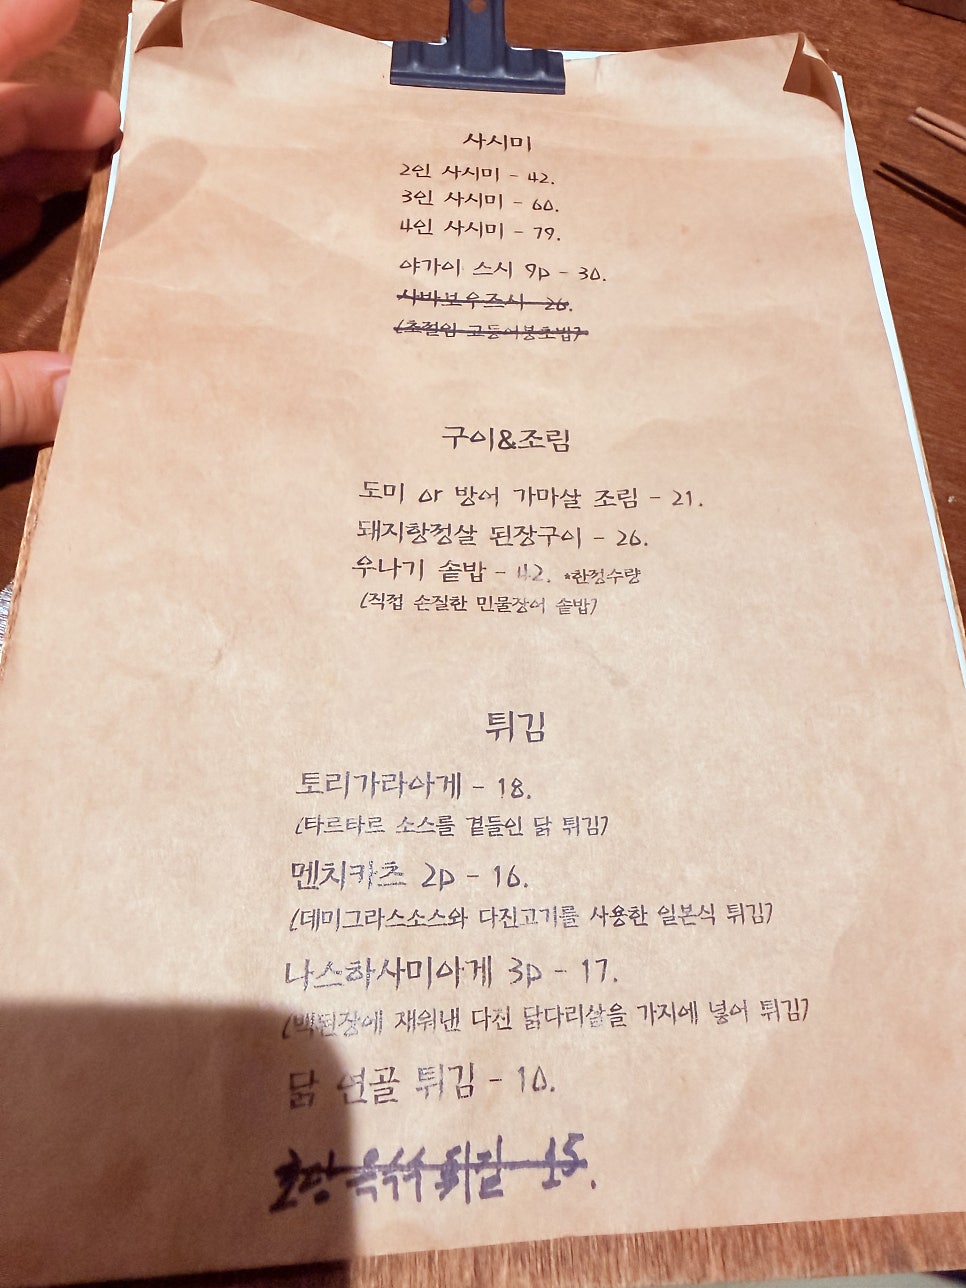 사시미
2인 사시미 - 42.
3인 사시미 - 60.
4인 사시미 - 79.
야가이 스시 9p - 30.
사바보우즈시 - 26.
(초절임 고등어봉초밥)
구이&조림
도미 or 방어 가마살 조림 - 21.
돼지항정살 된장구이 - 26.
우나기 솥밥 - 42. *한정수량
(직접 손질한 민물장어 솥밥)
튀김
토리가라아게 - 18.
(타르타르 소스를 곁들인 닭 튀김)
멘치카츠 2p - 16.
(데미그라스소스와 다진고기를 사용한 일본식 튀김)
나스하사미아게 3p - 17.
(백된장에 재워낸 다진 닭다리살을 가지에 넣어 튀김)
닭 연골 튀김 - 10.
초당 옥수수 튀김 - 15.